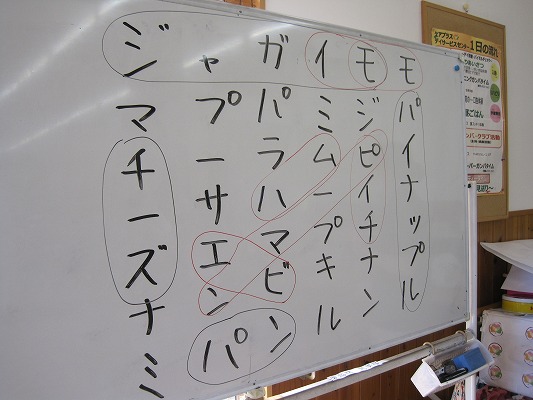 ジャガイモモ
マプパミジパ
チーラムピイ
ーサハーイナ
ズエマプチッ
ナンビキナプ
ミパンルンル
デイサービスセンター
1日の流れ